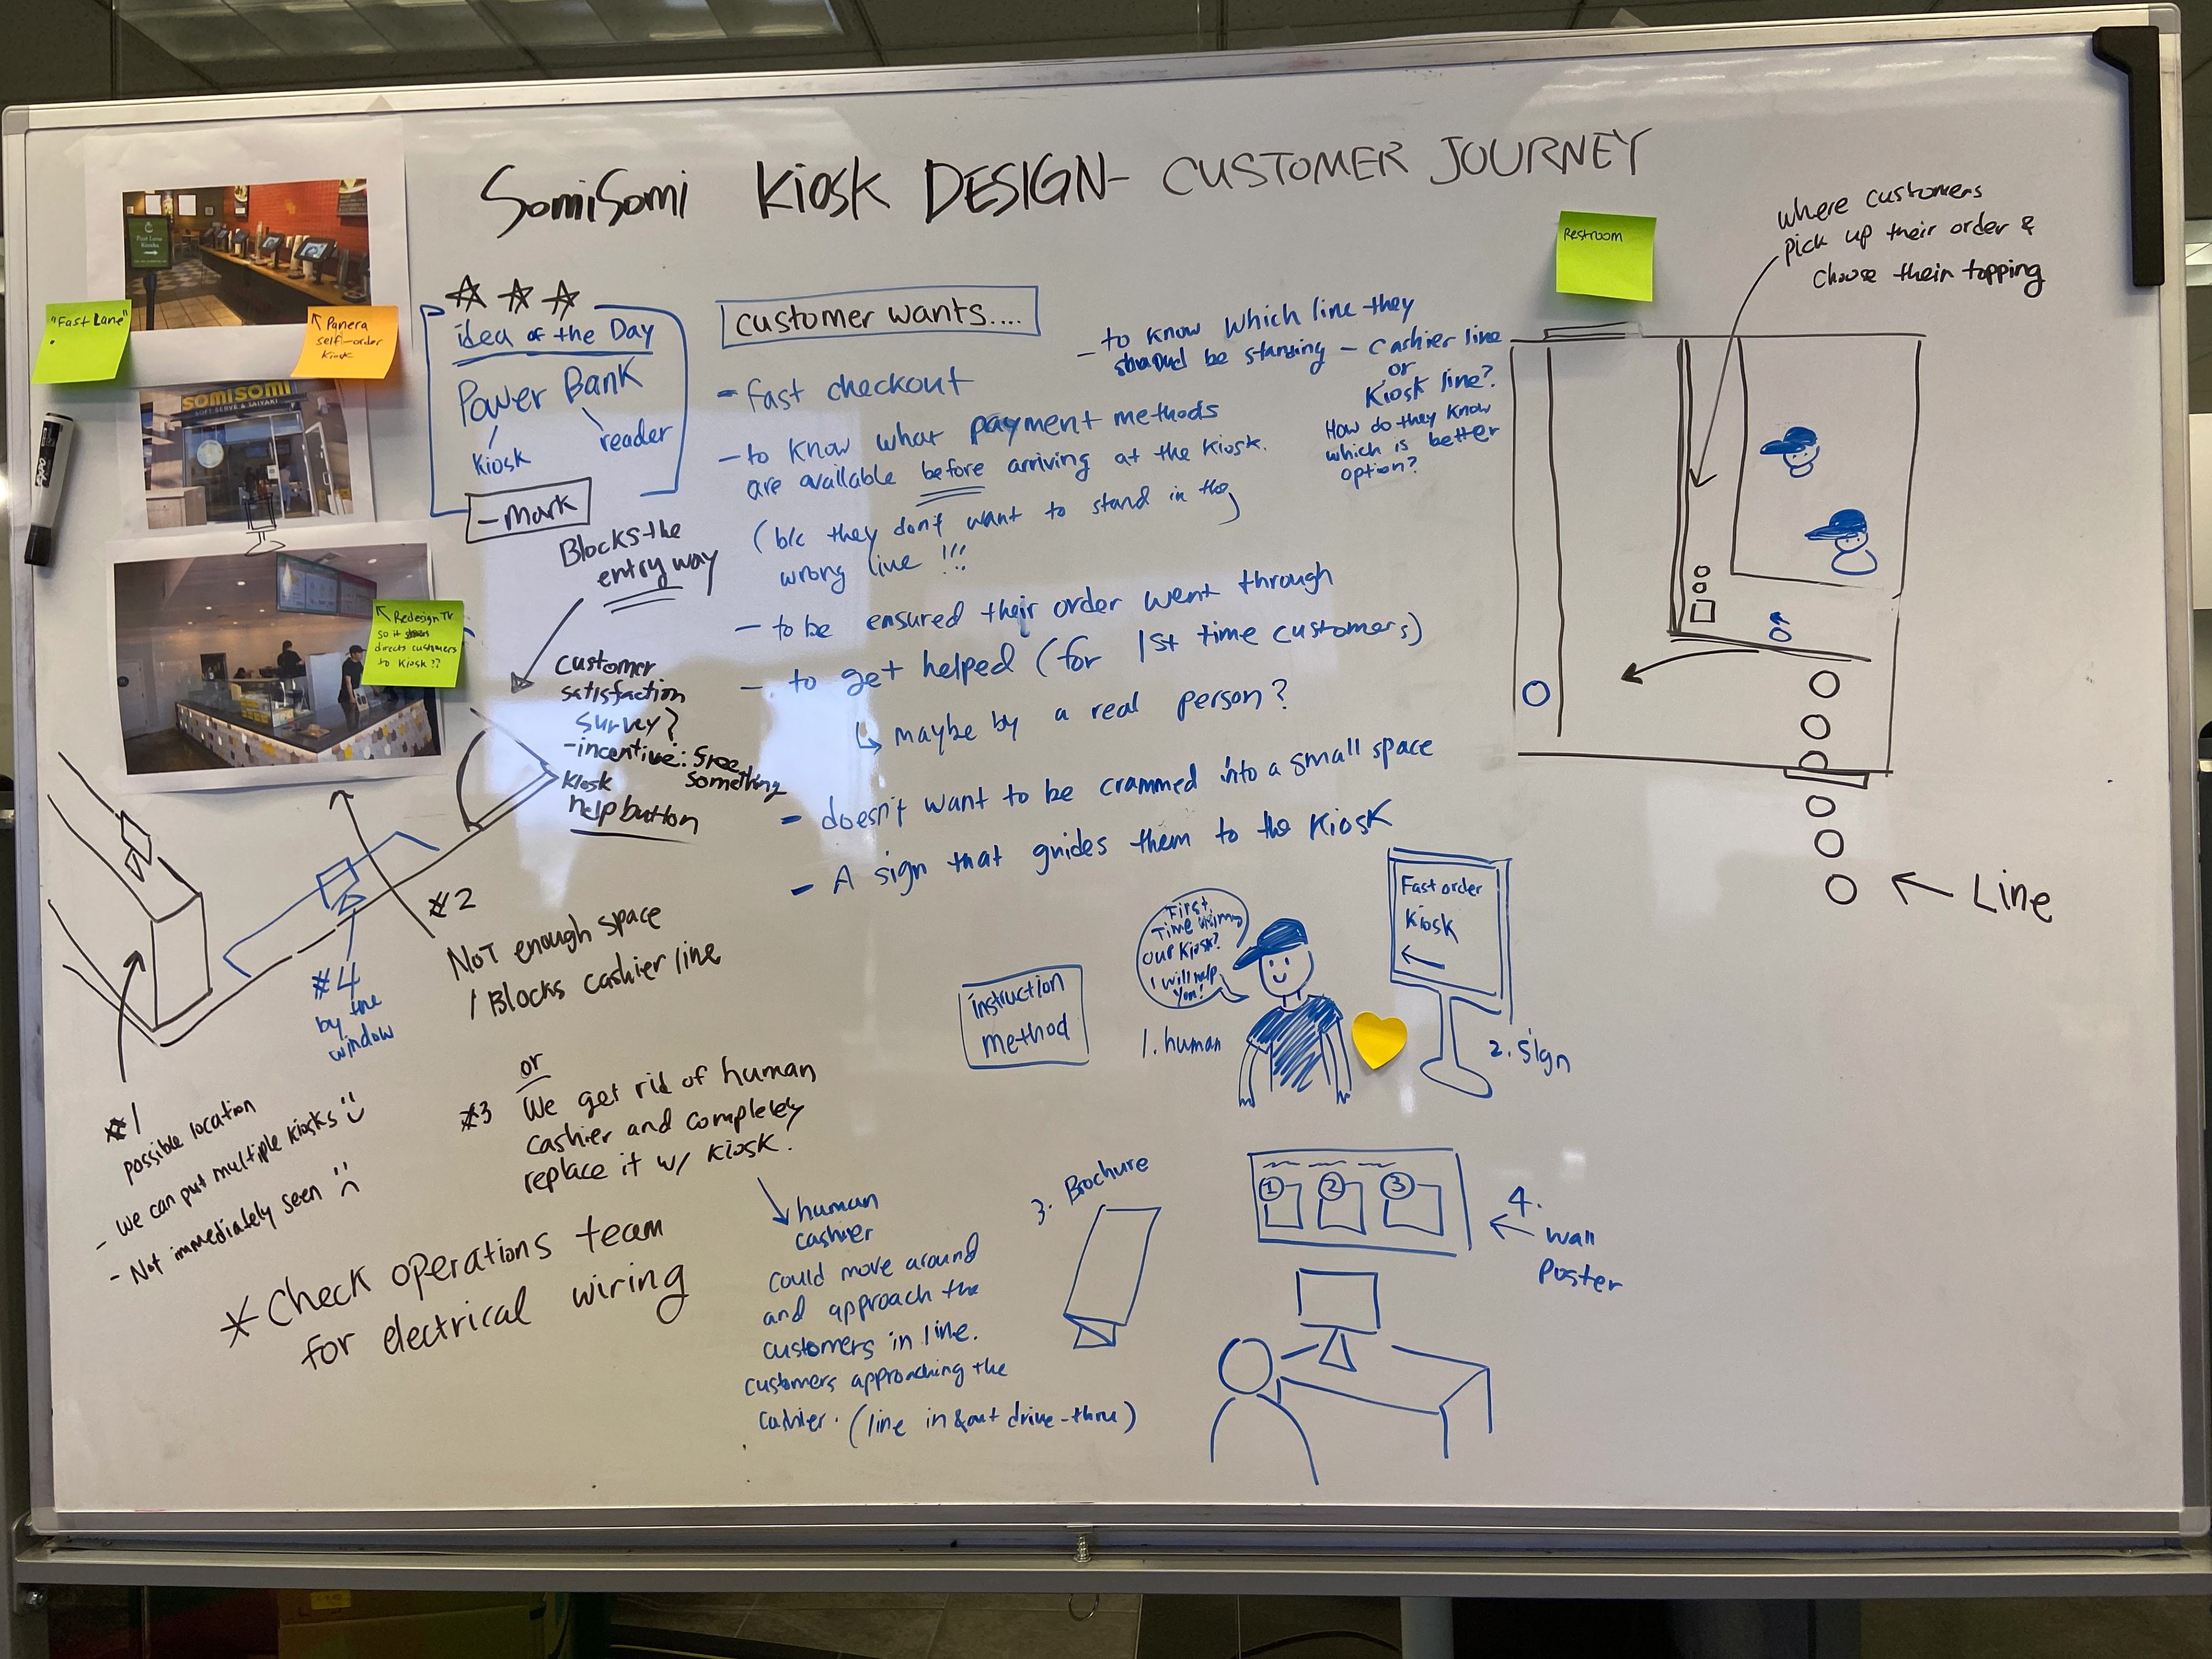 SomiSomi Kiosk DESIGN- CUSTOMER JOURNEY
Fast Lane
Kiosks
"Fast Lane"
Panera
self-order
kiosk
SOMISOMI
SOFT SERVE & TAIYAKI
Redesign TV
so it
directs customers
to kiosk??
idea of the Day
Power Bank
kiosk
reader
- Mark
Blocks the
entry way
Customer
satisfaction
survey?
- incentive: free
something
kiosk
help button
customer wants....
- fast checkout
- to know what payment methods
are available before arriving at the kiosk.
(b/c they don't want to stand in the
wrong line !!!)
- to be ensured their order went through
- to get helped (for 1st time customers)
maybe by a real person?
- doesn't want to be crammed into a small space
- A sign that guides them to the Kiosk
- to know which line they
should be standing - cashier line
or
Kiosk line?
How do they know
which is better
option?
Restroom
where customers
pick up their order &
choose their topping
Line
#2
Not enough space
/ Blocks cashier line
#4
by the
window
#1
possible location
- we can put multiple kiosks
- Not immediately seen
or
#3 We get rid of human
cashier and completely
replace it w/ kiosk.
human
cashier
could move around
and approach the
customers in line.
customers approaching the
cashier. (line in&out drive-thru)
* Check operations team
for electrical wiring
instruction
method
First
Time using
our kiosk?
I will help
you!
1. human
Fast order
Kiosk
2. Sign
3. Brochure
1 2 3
4.
wall
Poster